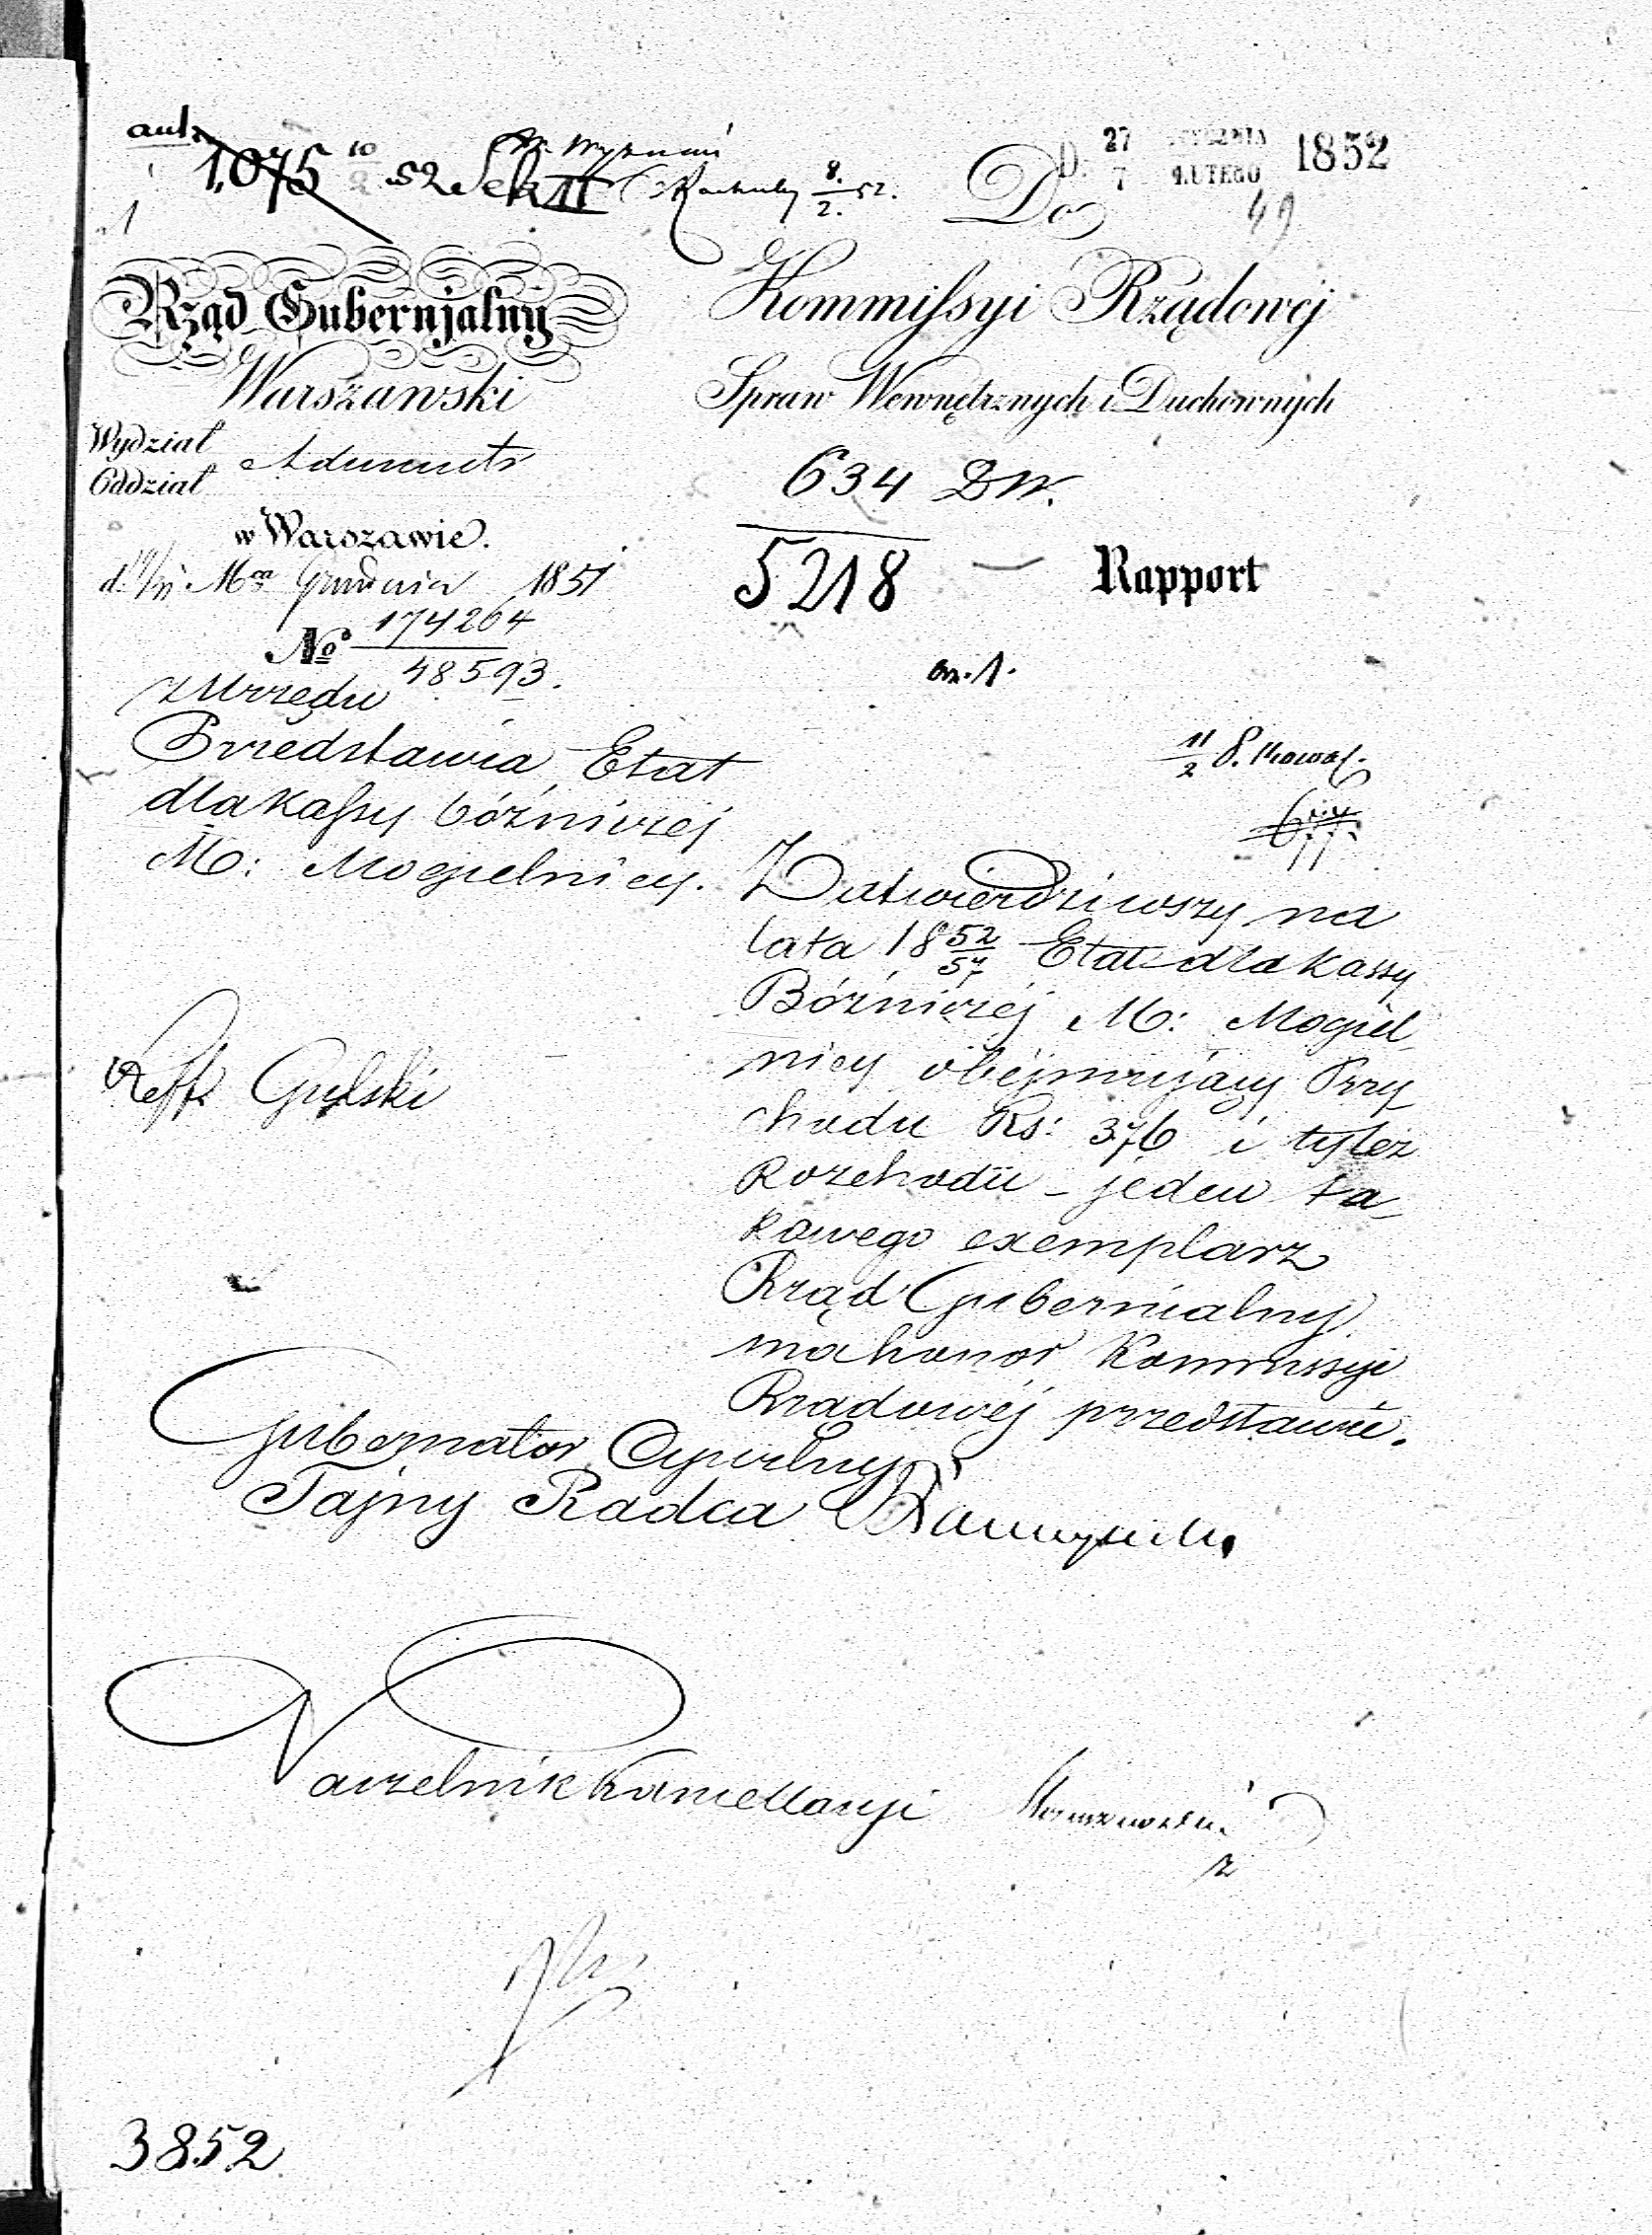 1,075 10/2 52 Sek II
8/2. 52.
D. 27 STYCZNIA
7 LUTEGO 1852
49
Do
Rząd Gubernjalny
Warszawski
Wydział
Oddział
w Warszawie.
Mca Grudnia 1851
No 174264
48593.
z Urzędu
Przedstawia Etat
dla Kassy bóżniczej
M: Mogielnicy.
Reft Gulski
Kommissyi Rządowéj
Spraw Wewnętrznych i Duchownych
634 DW.
5218 — Rapport
11/2
Zatwierdziwszy na
lata 18 52/57 Etat dla kassy
Bóżniczéj M: Mogiel_
nicy obéjmujący Przy_
chodu Rs: 376 i tyleż
Rozchodu – jeden ta_
kowego exemplarz
Rząd Gubernialny
ma honor Kommissyi
Rządowéj przedstawić.
Gubernator Cywilny
Tajny Radca
Naczelnik Kancellaryi
3852